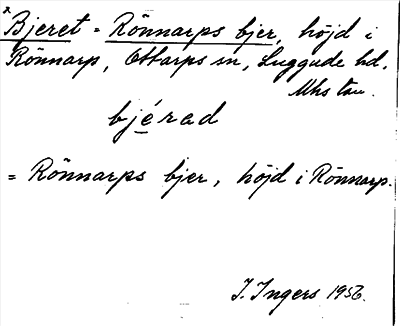 x Bjeret = Rönnarps bjer, höjd i
Rönnarp, Ottarps sn, Luggude hd.
Mhs län.
bjérad
= Rönnarps bjer, höjd i Rönnarp.
I. Ingers 1956.